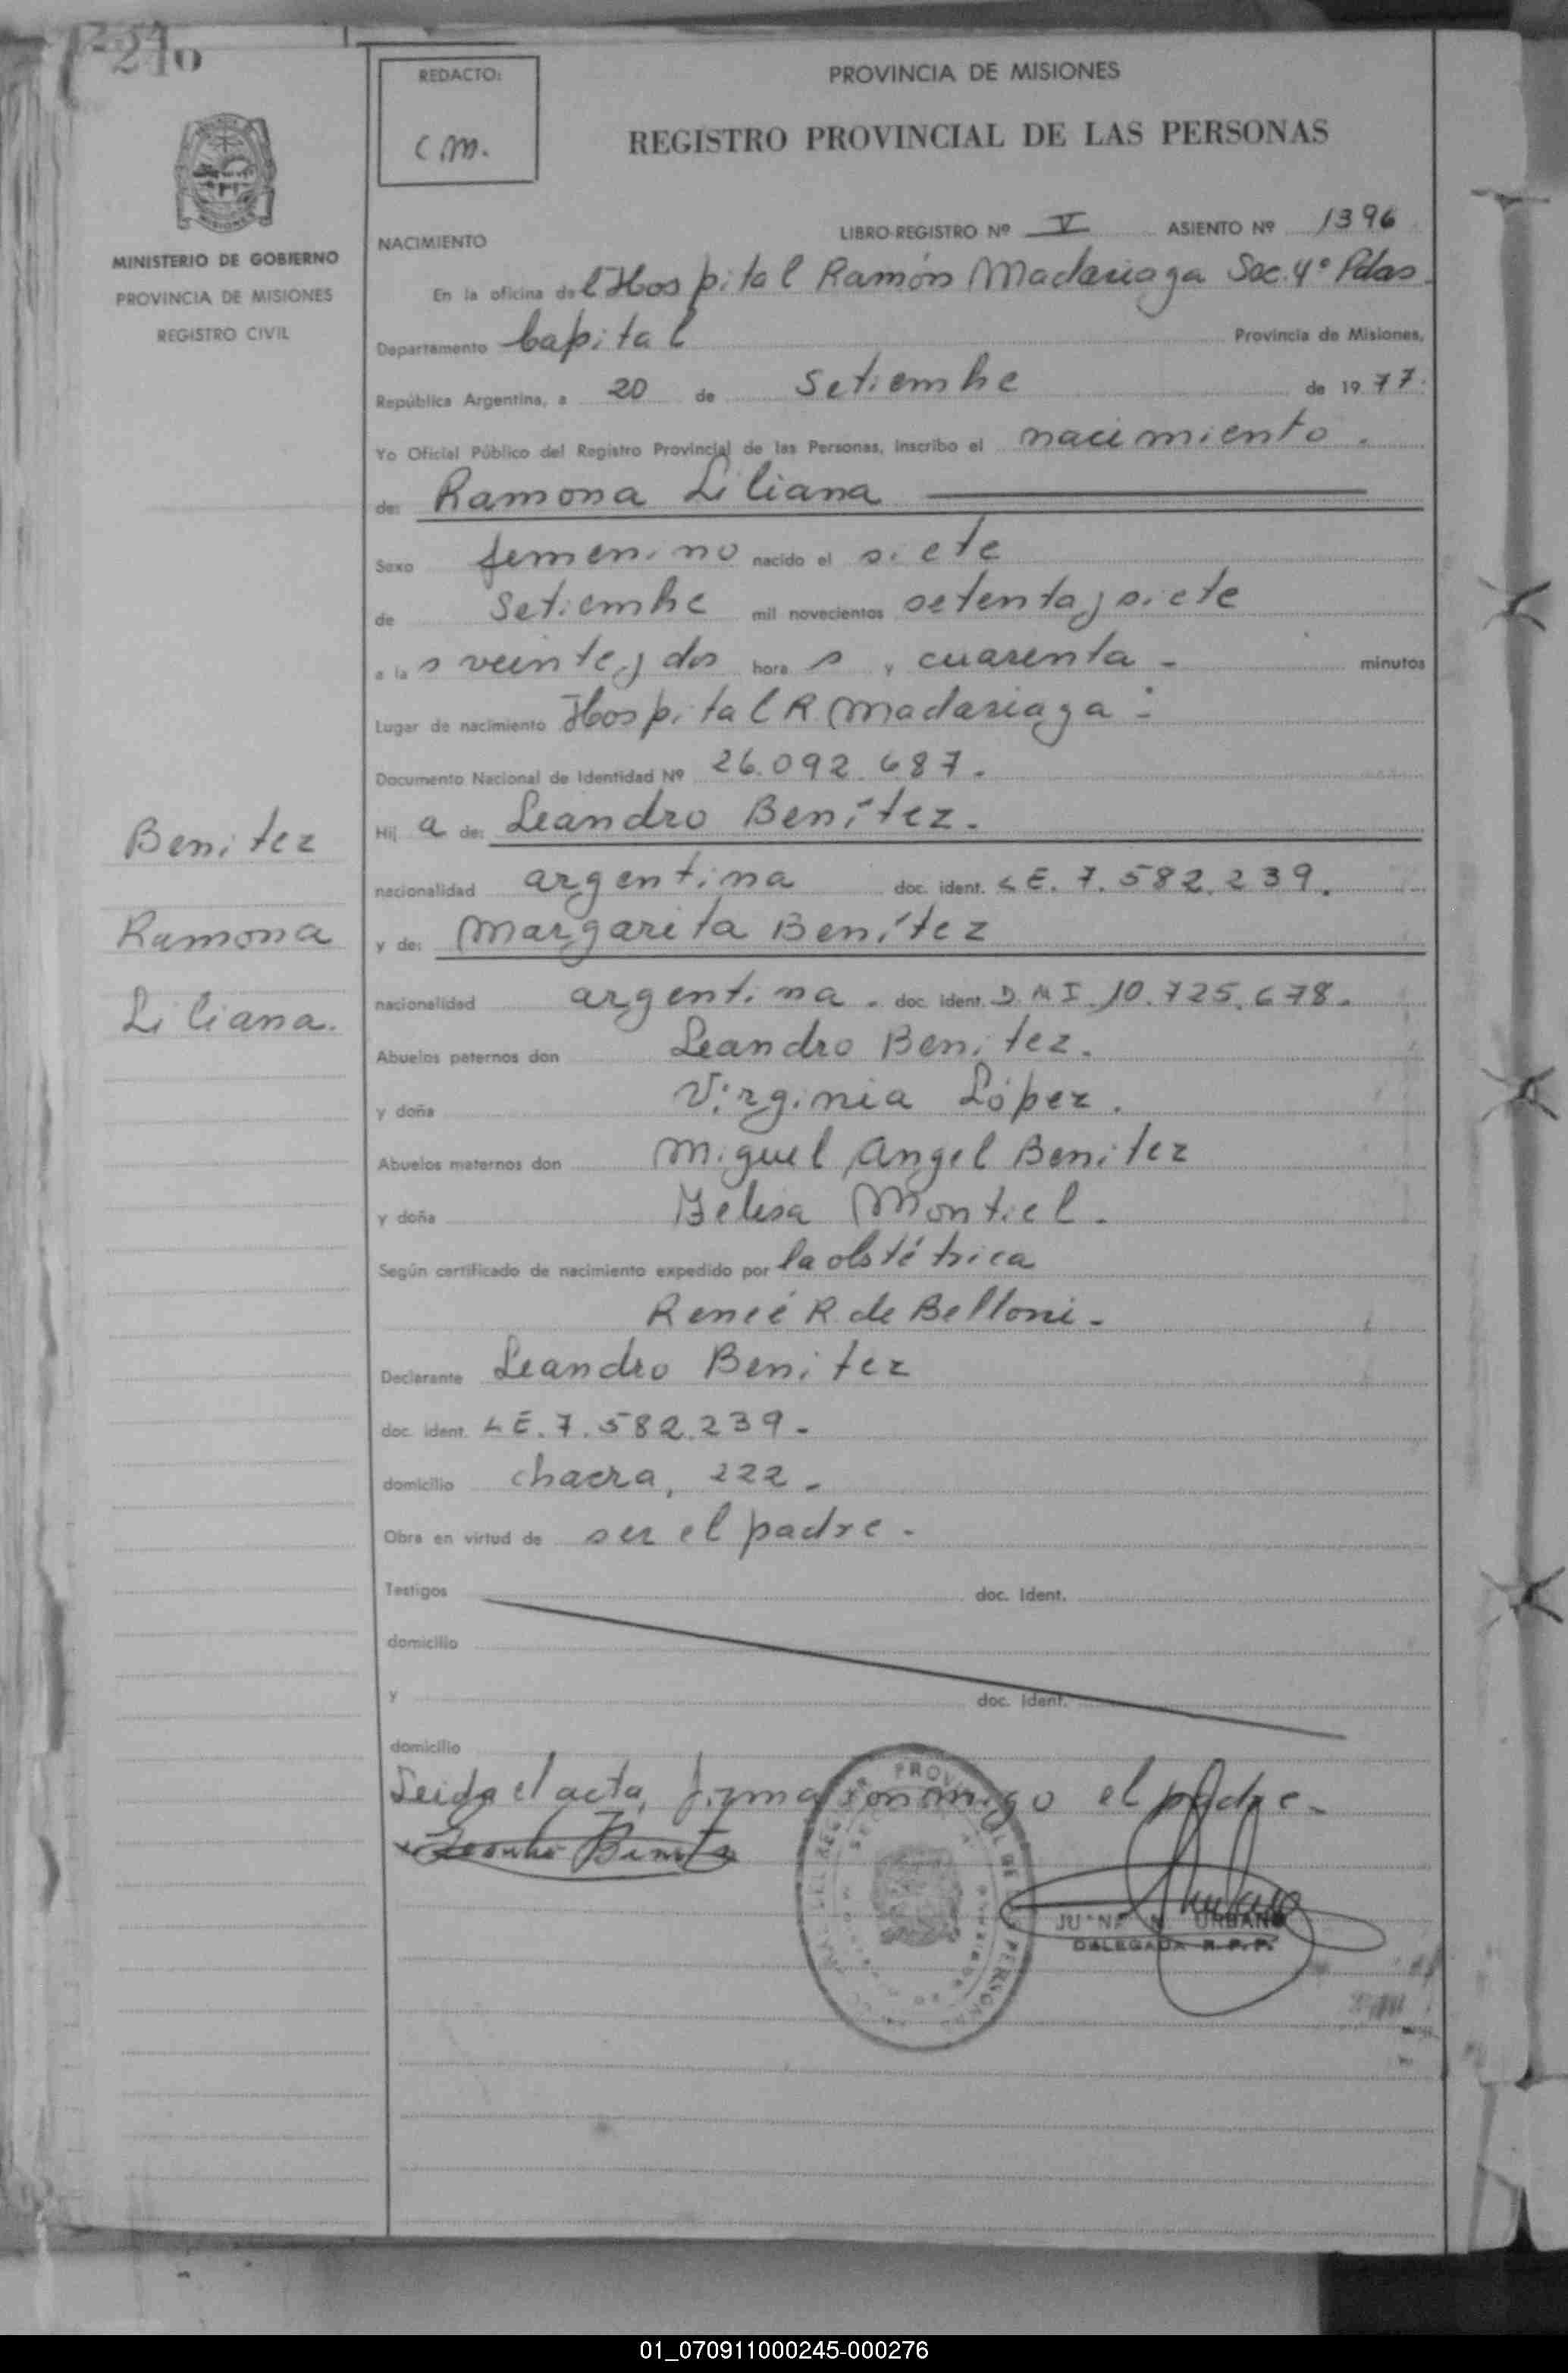 210
REDACTO:
C.M.
PROVINCIA DE MISIONES
REGISTRO PROVINCIAL DE LAS PERSONAS
MINISTERIO DE GOBIERNO
PROVINCIA DE MISIONES
REGISTRO CIVIL
NACIMIENTO
LIBRO-REGISTRO Nº V ASIENTO Nº 1396
En la oficina del Hospital Ramón Madariaga Sec. 4º Pdas.
Departamento Capital Provincia de Misiones,
República Argentina, a 20 de Setiembre de 1977.
Yo Oficial Público del Registro Provincial de las Personas, inscribo el nacimiento.
de: Ramona Liliana
Sexo femenino nacido el siete
de Setiembre mil novecientos setenta y siete
a las veinte y dos horas y cuarenta - minutos
Lugar de nacimiento Hospital R. Madariaga -
Documento Nacional de Identidad Nº 26.092.687.
Hija de: Leandro Benítez.
nacionalidad argentina doc. ident. LE. 7.582.239.
y de: Margarita Benítez
nacionalidad argentina. doc. ident. D.N.I. 10.725.678.
Abuelos paternos don Leandro Benitez.
y doña Virginia López.
Abuelos maternos don Miguel Angel Benitez
y doña Montiel.
Según certificado de nacimiento expedido por la obstétrica
Reneé R. de Belloni.
Declarante Leandro Benitez
doc. ident. LE. 7.582.239.
domicilio chacra, 222.
Obra en virtud de ser el padre.
Testigos doc. Ident.
domicilio
y doc. Ident.
domicilio
Leida el acta, firma conmigo el padre.
Benitez
Ramona
Liliana.
URBANO
DELEGADA R.P.P.
01_070911000245-000276